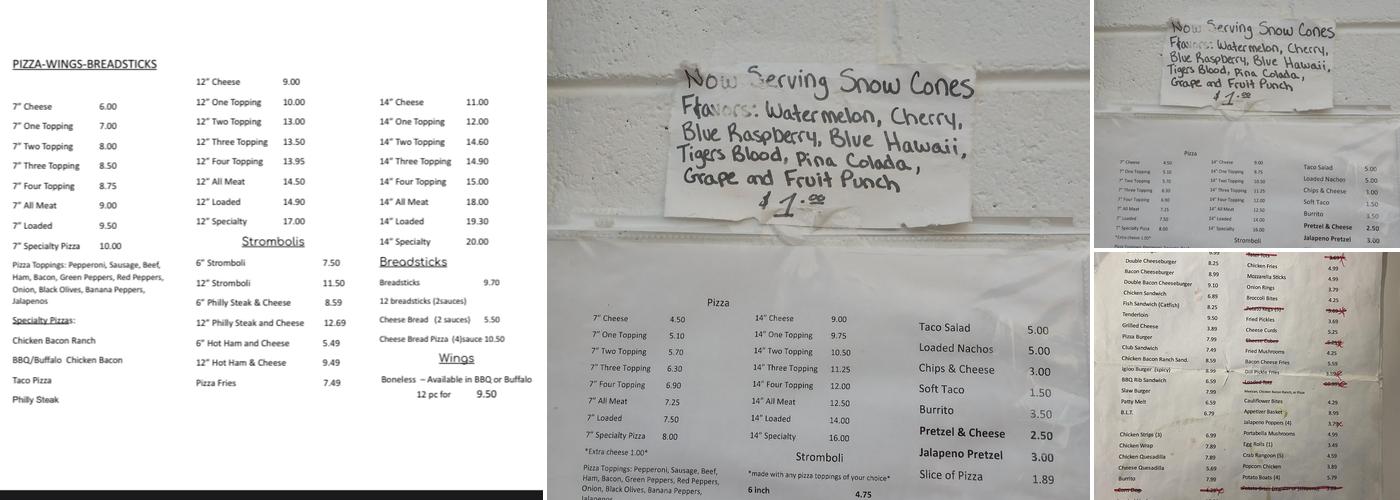 PIZZA-WINGS-BREADSTICKS
7" Cheese 6.00
7" One Topping 7.00
7" Two Topping 8.00
7" Three Topping 8.50
7" Four Topping 8.75
7" All Meat 9.00
7" Loaded 9.50
7" Specialty Pizza 10.00
Pizza Toppings: Pepperoni, Sausage, Beef,
Ham, Bacon, Green Peppers, Red Peppers,
Onion, Black Olives, Banana Peppers,
Jalapenos
Specialty Pizzas:
Chicken Bacon Ranch
BBQ/Buffalo Chicken Bacon
Taco Pizza
Philly Steak
12" Cheese 9.00
12" One Topping 10.00
12" Two Topping 13.00
12" Three Topping 13.50
12" Four Topping 13.95
12" All Meat 14.50
12" Loaded 14.90
12" Specialty 17.00
Strombolis
6" Stromboli 7.50
12" Stromboli 11.50
6" Philly Steak & Cheese 8.59
12" Philly Steak and Cheese 12.69
6" Hot Ham and Cheese 5.49
12" Hot Ham & Cheese 9.49
Pizza Fries 7.49
14" Cheese 11.00
14" One Topping 12.00
14" Two Topping 14.60
14" Three Topping 14.90
14" Four Topping 15.00
14" All Meat 18.00
14" Loaded 19.30
14" Specialty 20.00
Breadsticks
Breadsticks 9.70
12 breadsticks (2sauces)
Cheese Bread (2 sauces) 5.50
Cheese Bread Pizza (4)sauce 10.50
Wings
Boneless – Available in BBQ or Buffalo
12 pc for 9.50
Now Serving Snow Cones
Flavors: Watermelon, Cherry,
Blue Raspberry, Blue Hawaii,
Tigers Blood, Pina Colada,
Grape and Fruit Punch
$1.00
Pizza
7" Cheese 4.50
7" One Topping 5.10
7" Two Topping 5.70
7" Three Topping 6.30
7" Four Topping 6.90
7" All Meat 7.25
7" Loaded 7.50
7" Specialty Pizza 8.00
*Extra cheese 1.00*
Pizza Toppings: Pepperoni, Sausage, Beef,
Ham, Bacon, Green Peppers, Red Peppers,
Onion, Black Olives, Banana Peppers,
Jalapenos
14" Cheese 9.00
14" One Topping 9.75
14" Two Topping 10.50
14" Three Topping 11.25
14" Four Topping 12.00
14" All Meat 12.50
14" Loaded 14.00
14" Specialty 16.00
Stromboli
*made with any pizza toppings of your choice*
6 inch 4.75
Taco Salad 5.00
Loaded Nachos 5.00
Chips & Cheese 3.00
Soft Taco 1.50
Burrito 3.50
Pretzel & Cheese 2.50
Jalapeno Pretzel 3.00
Slice of Pizza 1.89
Now Serving Snow Cones
Flavors: Watermelon, Cherry,
Blue Raspberry, Blue Hawaii,
Tigers Blood, Pina Colada,
Grape and Fruit Punch
$1.00
Pizza
7" Cheese 4.50
7" One Topping 5.10
7" Two Topping 5.70
7" Three Topping 6.30
7" Four Topping 6.90
7" All Meat 7.25
7" Loaded 7.50
7" Specialty Pizza 8.00
*Extra cheese 1.00*
14" Cheese 9.00
14" One Topping 9.75
14" Two Topping 10.50
14" Three Topping 11.25
14" Four Topping 12.00
14" All Meat 12.50
14" Loaded 14.00
14" Specialty 16.00
Stromboli
Taco Salad 5.00
Loaded Nachos 5.00
Chips & Cheese 3.00
Soft Taco 1.50
Burrito 3.50
Pretzel & Cheese 2.50
Jalapeno Pretzel 3.00
Double Cheeseburger 8.25
Bacon Cheeseburger 7.99
Double Bacon Cheeseburger 9.10
Chicken Sandwich 6.89
Fish Sandwich (Catfish) 8.25
Tenderloin 9.50
Grilled Cheese 3.89
Pizza Burger 7.99
Club Sandwich 7.49
Chicken Bacon Ranch Sand. 8.99
Igloo Burger (spicy) 8.99
BBQ Rib Sandwich 6.59
Slaw Burger 7.99
Patty Melt 6.59
B.L.T. 6.79
Chicken Strips (3) 6.99
Chicken Wrap 7.89
Chicken Quesadilla 7.89
Cheese Quesadilla 5.69
Burrito 7.99
Corn Dog
Tater Tots
Chicken Fries 4.99
Mozzarella Sticks 4.99
Onion Rings 3.79
Broccoli Bites 4.25
Fried Pickles 3.69
Cheese Curds 5.25
Cheese Cubes
Fried Mushrooms 4.25
Bacon Cheese Fries 5.59
Dill Pickle Fries
Loaded Tots
Cauliflower Bites 4.29
Appetizer Basket 8.99
Jalapeno Poppers (4)
Portabella Mushrooms 4.99
Egg Rolls (1) 3.49
Crab Rangoon (5) 4.59
Popcorn Chicken 3.89
Potato Boats (4) 5.79